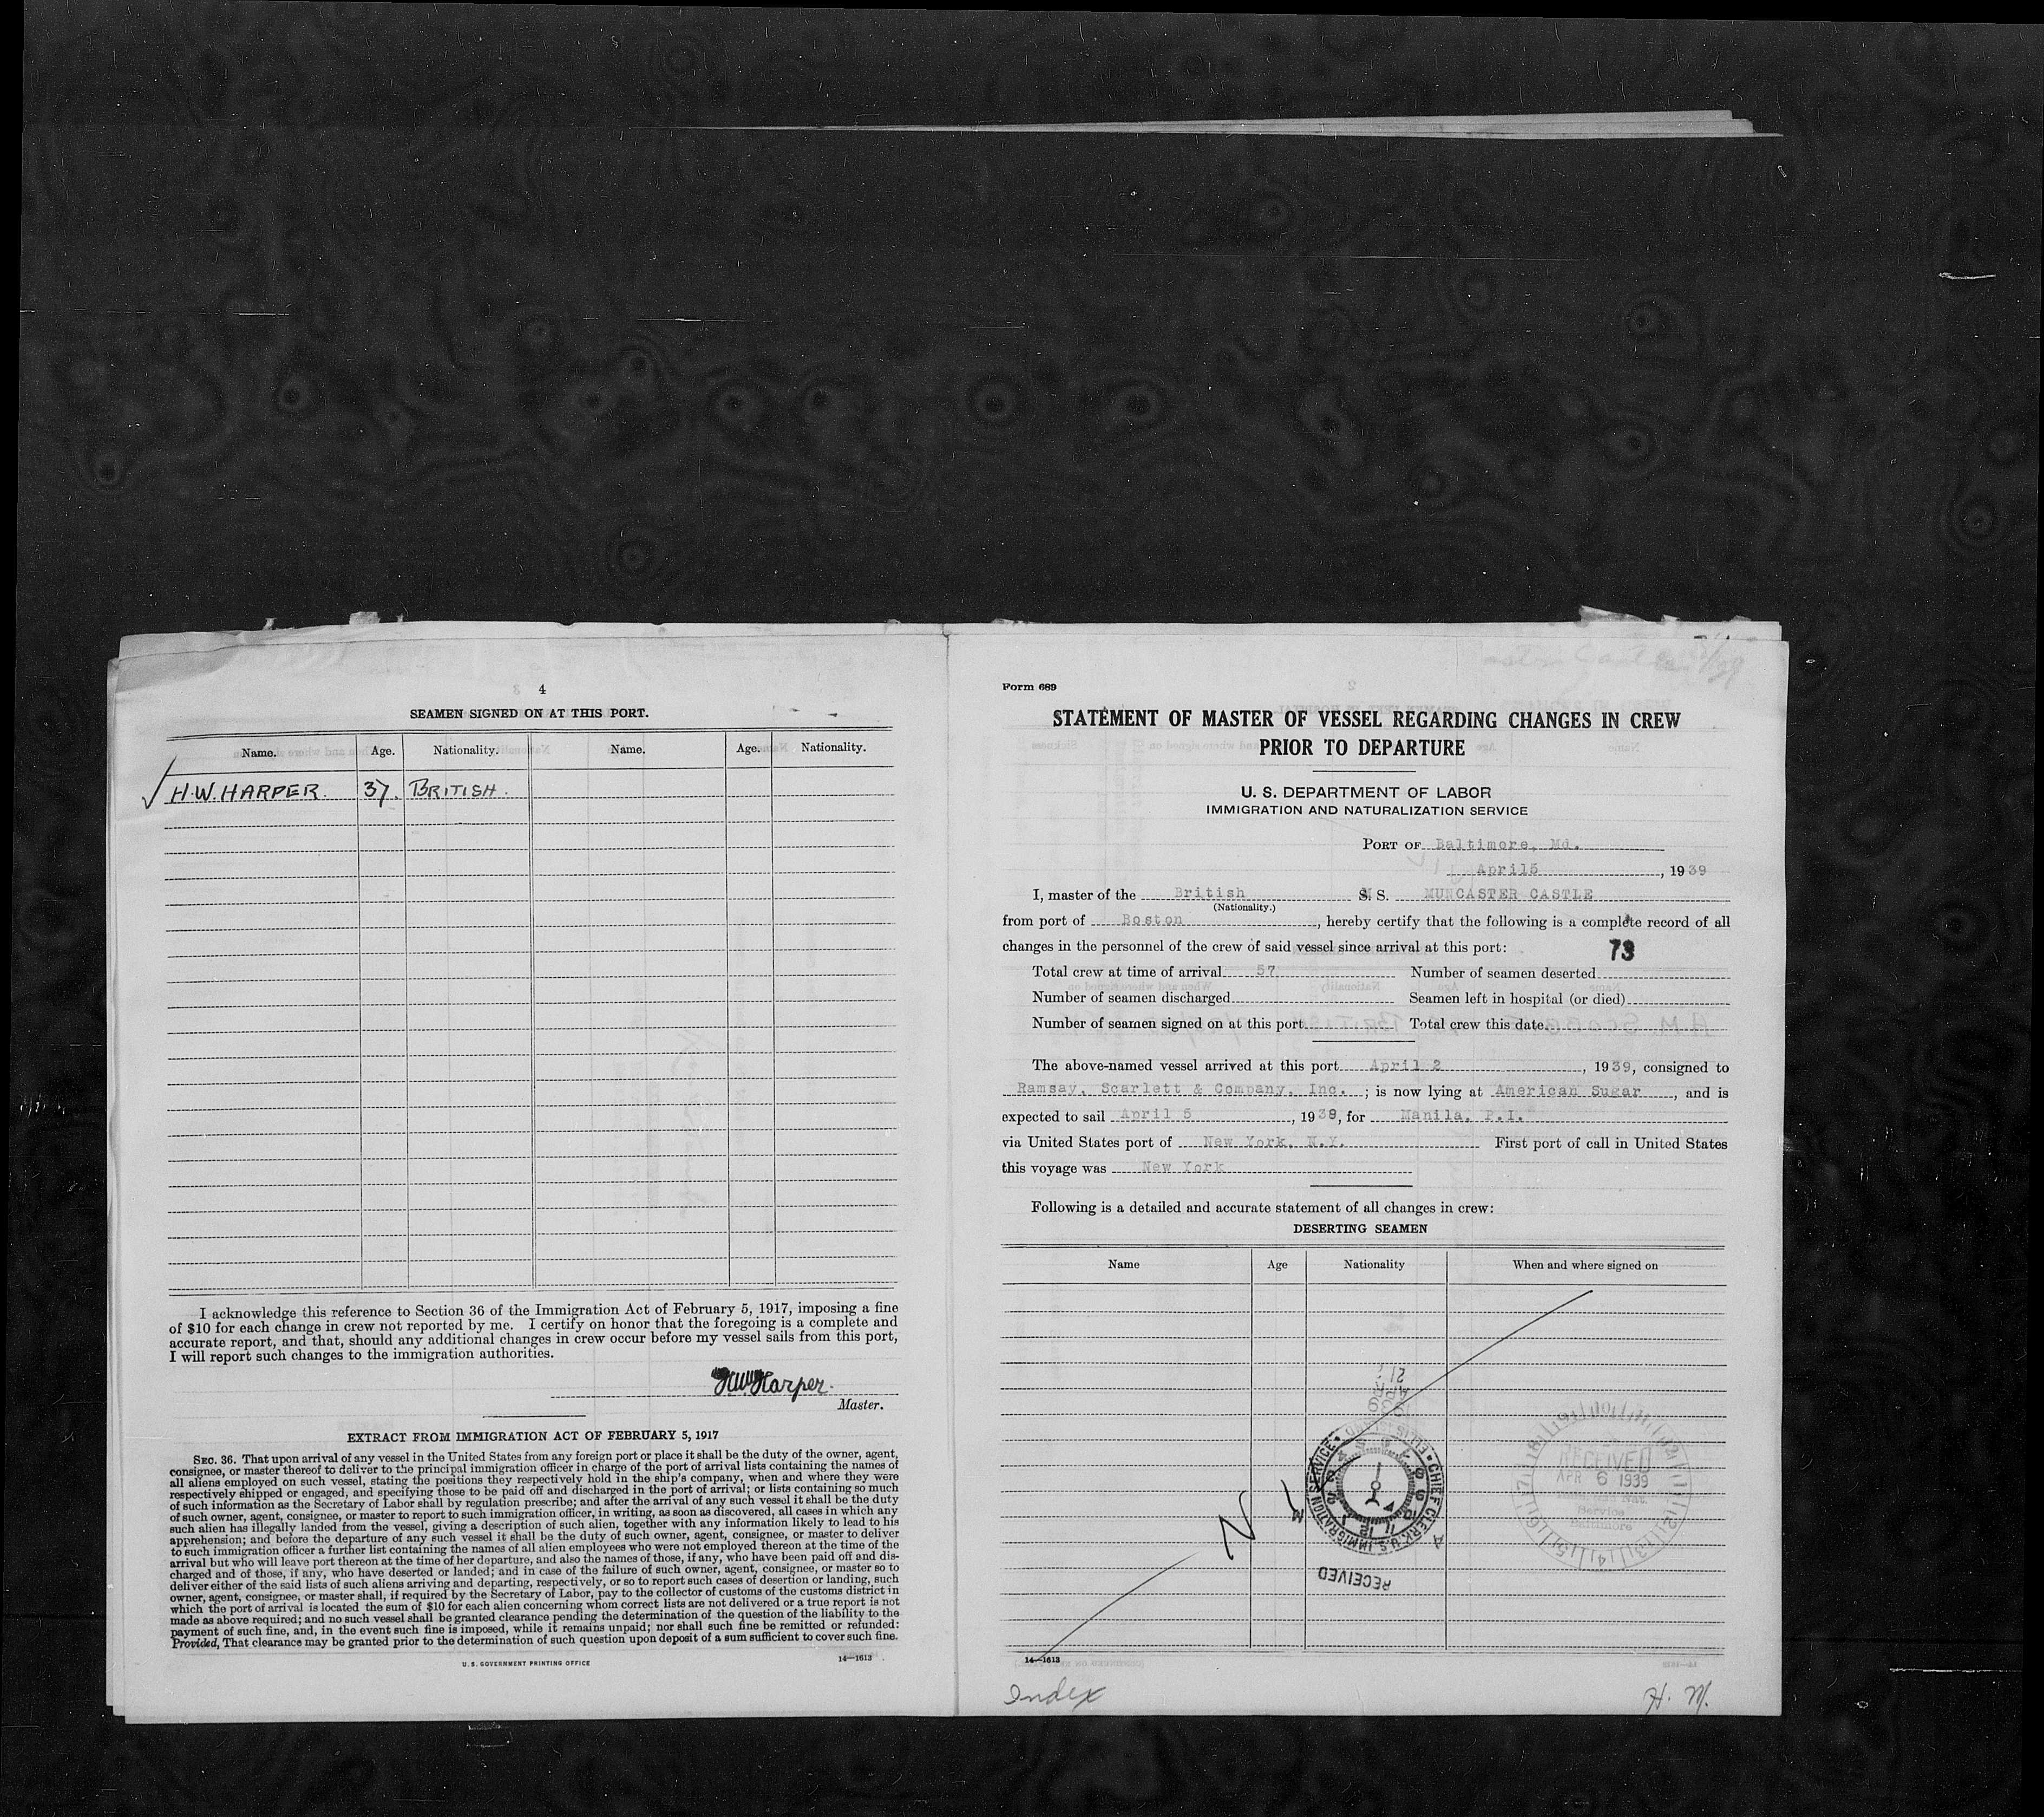 4
SEAMEN SIGNED ON AT THIS PORT.
Name. Age. Nationality. Name. Age. Nationality.
H.W. HARPER. 37. BRITISH.
I acknowledge this reference to Section 36 of the Immigration Act of February 5, 1917, imposing a fine
of $10 for each change in crew not reported by me. I certify on honor that the foregoing is a complete and
accurate report, and that, should any additional changes in crew occur before my vessel sails from this port,
I will report such changes to the immigration authorities.
HWHarper.
Master.
EXTRACT FROM IMMIGRATION ACT OF FEBRUARY 5, 1917
SEC. 36. That upon arrival of any vessel in the United States from any foreign port or place it shall be the duty of the owner, agent,
consignee, or master thereof to deliver to the principal immigration officer in charge of the port of arrival lists containing the names of
all aliens employed on such vessel, stating the positions they respectively hold in the ship's company, when and where they were
respectively shipped or engaged, and specifying those to be paid off and discharged in the port of arrival; or lists containing so much
of such information as the Secretary of Labor shall by regulation prescribe; and after the arrival of any such vessel it shall be the duty
of such owner, agent, consignee, or master to report to such immigration officer, in writing, as soon as discovered, all cases in which any
such alien has illegally landed from the vessel, giving a description of such alien, together with any information likely to lead to his
apprehension; and before the departure of any such vessel it shall be the duty of such owner, agent, consignee, or master to deliver
to such immigration officer a further list containing the names of all alien employees who were not employed thereon at the time of the
arrival but who will leave port thereon at the time of her departure, and also the names of those, if any, who have been paid off and dis-
charged and of those, if any, who have deserted or landed; and in case of the failure of such owner, agent, consignee, or master so to
deliver either of the said lists of such aliens arriving and departing, respectively, or so to report such cases of desertion or landing, such
owner, agent, consignee, or master shall, if required by the Secretary of Labor, pay to the collector of customs of the customs district in
which the port of arrival is located the sum of $10 for each alien concerning whom correct lists are not delivered or a true report is not
made as above required; and no such vessel shall be granted clearance pending the determination of the question of the liability to the
payment of such fine, and, in the event such fine is imposed, while it remains unpaid; nor shall such fine be remitted or refunded:
Provided, That clearance may be granted prior to the determination of such question upon deposit of a sum sufficient to cover such fine.
U. S. GOVERNMENT PRINTING OFFICE 14—1613
Form 689
STATEMENT OF MASTER OF VESSEL REGARDING CHANGES IN CREW
PRIOR TO DEPARTURE
U. S. DEPARTMENT OF LABOR
IMMIGRATION AND NATURALIZATION SERVICE
PORT OF Baltimore, Md.
April5, 1939
I, master of the British S. S. MUNCASTER CASTLE
(Nationality.)
from port of Boston, hereby certify that the following is a complete record of all
changes in the personnel of the crew of said vessel since arrival at this port:
73
Total crew at time of arrival 57 Number of seamen deserted
Number of seamen discharged Seamen left in hospital (or died)
Number of seamen signed on at this port Total crew this date
The above-named vessel arrived at this port April 2, 1939, consigned to
Ramsay, Scarlett & Company, Inc.; is now lying at American Sugar, and is
expected to sail April 5, 1939, for Manila, P.I.
via United States port of New York, N.Y. First port of call in United States
this voyage was New York
Following is a detailed and accurate statement of all changes in crew:
DESERTING SEAMEN
Name Age Nationality When and where signed on
N I L
RECEIVED
APR 6 1939
Service
Baltimore
CHIEF CLERK U.S. IMMIGRATION SERVICE
RECEIVED
14—1613
Index
H. M.